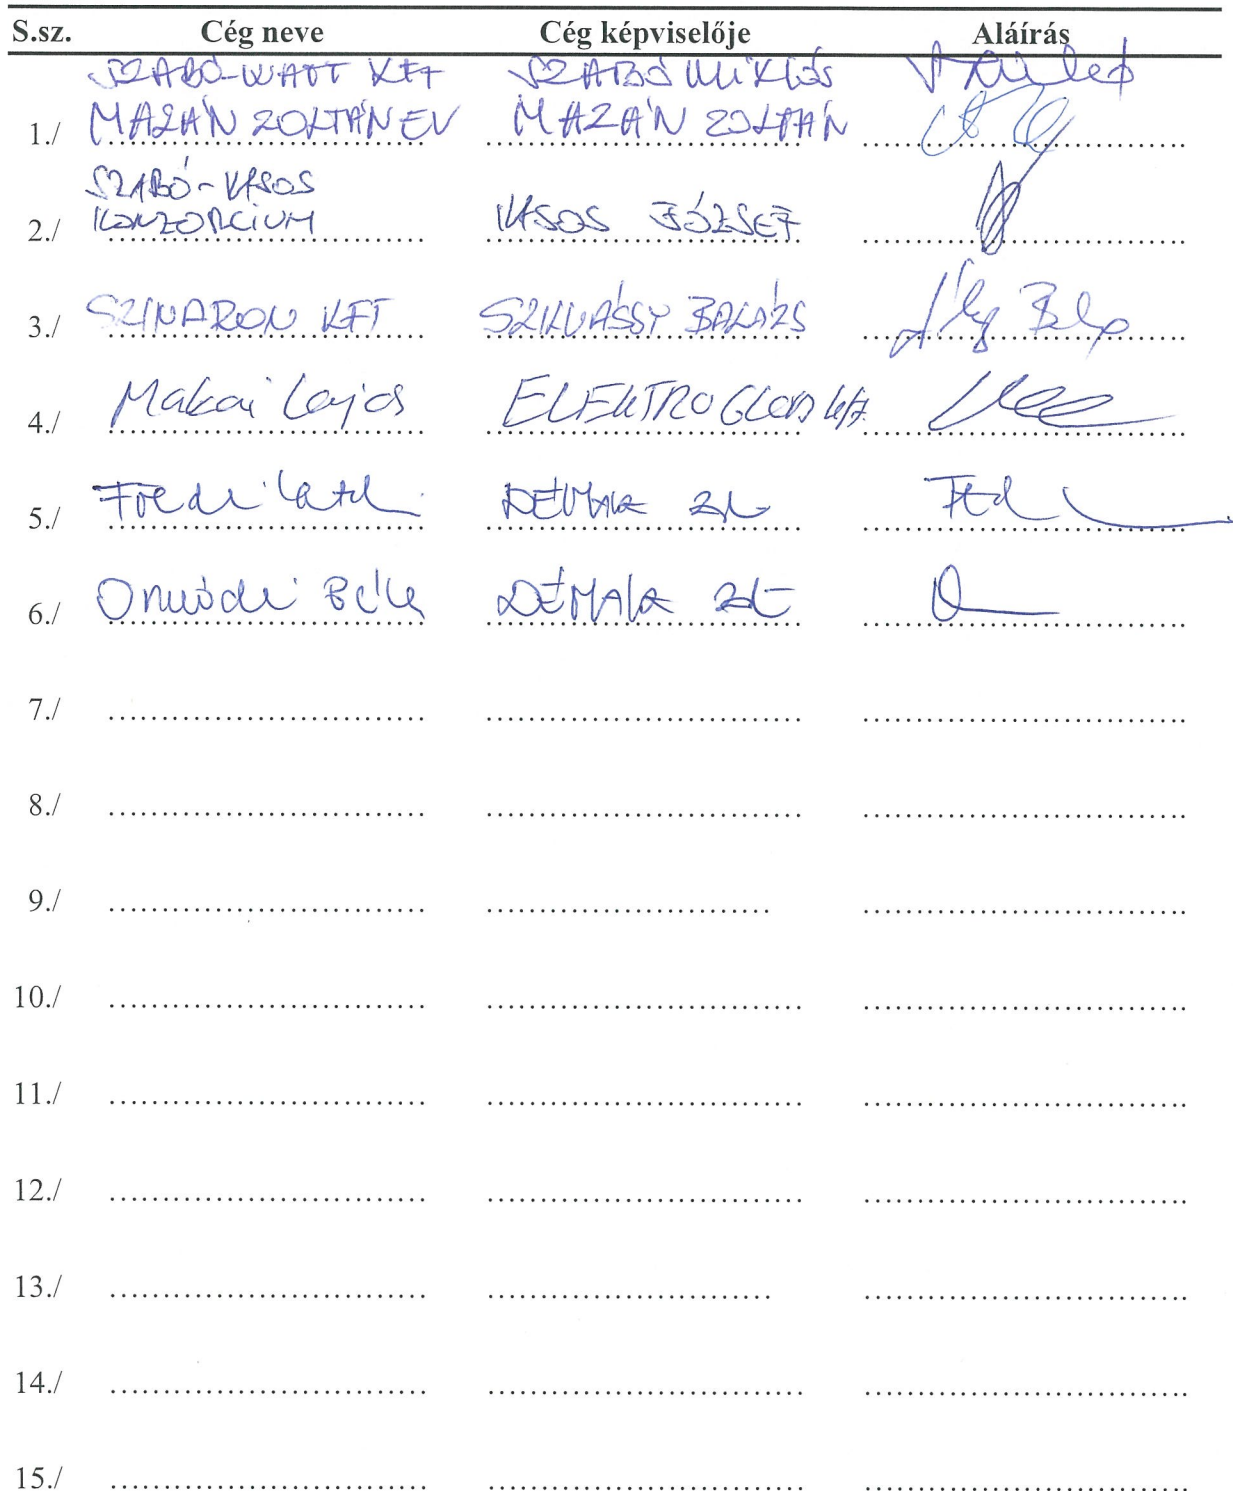 S.sz. Cég neve Cég képviselője Aláírás
SZABÓ-WATT KFT SZABÓ MIKLÓS
1./ MAZÁN ZOLTÁN EV MAZÁN ZOLTÁN
SZABÓ-VASOS
2./ KONZORCIUM VASOS JÓZSEF
3./ SZINARON KFT SZILVÁSSY BALÁZS
4./ Makai Lajos ELEKTRO GLOB kft.
5./ DÉMÁSZ Zrt
6./ Béla DÉMÁSZ Zrt
7./
8./
9./
10./
11./
12./
13./
14./
15./